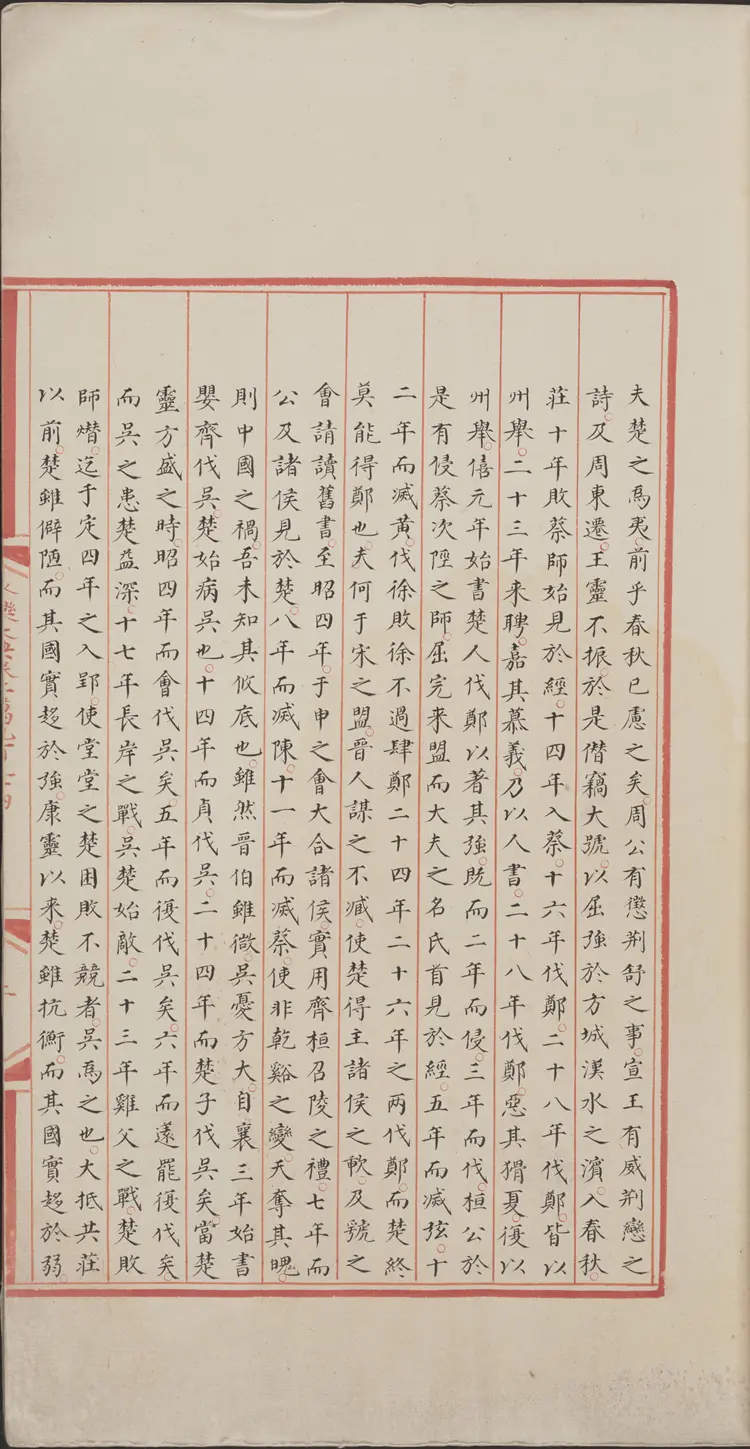 夫楚之爲夷前乎春秋已慮之矣周公有懲荆舒之事宣王有威荆蠻之
詩及周東遷王靈不振於是僭竊大號以屈強於方城漢水之濱入春秋
莊十年敗蔡師始見於經十四年入蔡十六年伐鄭二十八年伐鄭皆以
州舉二十三年来聘嘉其慕義乃以人書二十八年伐鄭惡其猾夏復以
州舉僖元年始書楚人伐鄭以著其強既而二年而侵三年而伐桓公於
是有侵蔡次陘之師屈完来盟而大夫之名氏首見於經五年而滅弦十
二年而滅黄伐徐敗徐不過肆鄭二十四年二十六年之两伐鄭而楚終
莫能得鄭也夫何于宋之盟晉人謀之不臧使楚得主諸侯之歃及號之
會請讀舊書至昭四年于申之會大合諸侯實用齊桓召陵之禮七年而
公及諸侯見於楚八年而滅陳十一年而滅蔡使非乾谿之變天奪其魄
則中國之禍吾未知其攸底也雖然晉伯雖微吳憂方大自襄三年始書
嬰齊伐吳楚始病吳也十四年而貞伐吳二十四年而楚子伐吳矣當楚
靈方盛之時昭四年而會伐吳矣五年而復伐吳矣六年而薳罷復伐矣
而吳之患楚益深十七年長岸之戰吳楚始敵二十三年雞父之戰楚敗
師熸迄于定四年之入郢使堂堂之楚困敗不競者吳爲之也大抵共莊
以前楚雖僻陋而其國實趍於強康靈以来楚雖抗衡而其國實趍於弱